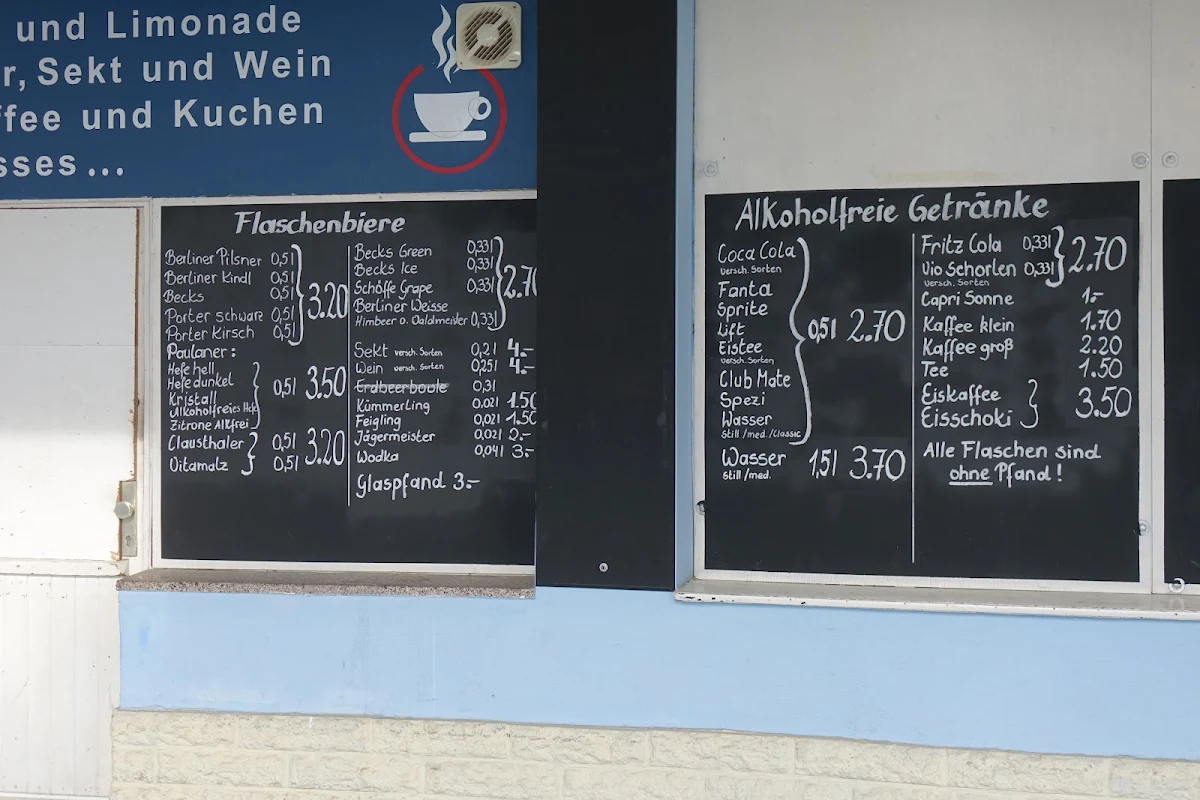 und Limonade
r, Sekt und Wein
ffee und Kuchen
sses...
Flaschenbiere
Berliner Pilsner 0,5l
Berliner Kindl 0,5l
Becks 0,5l
Porter schwarz 0,5l
Porter Kirsch 0,5l
3.20
Paulaner:
Hefe hell
Hefe dunkel
Kristall
Alkoholfreies Hefe
Zitrone Alkfrei
0,5l 3.50
Clausthaler 0,5l
Vitamalz 0,5l
3.20
Becks Green 0,33l
Becks Ice 0,33l
Schöffe Grape 0,33l
Berliner Weisse
Himbeer o. Waldmeister 0,33l
2.70
Sekt versch. Sorten 0,2l 4.-
Wein versch. Sorten 0,25l 4.-
Erdbeerbowle 0,3l
Kümmerling 0.02l 1.50
Feigling 0,02l 1.50
Jägermeister 0,02l 2.-
Wodka 0,04l 3.-
Glaspfand 3.-
Alkoholfreie Getränke
Coca Cola
versch. Sorten
Fanta
Sprite
Lift
Eistee
versch. Sorten
Club Mate
Spezi
Wasser
Still/med./Classic
0,5l 2.70
Wasser 1,5l 3.70
Still/med.
Fritz Cola 0,33l
Vio Schorlen 0,33l
versch. Sorten
2.70
Capri Sonne 1.-
Kaffee klein 1.70
Kaffee groß 2.20
Tee 1.50
Eiskaffee
Eisschoki
3.50
Alle Flaschen sind
ohne Pfand!